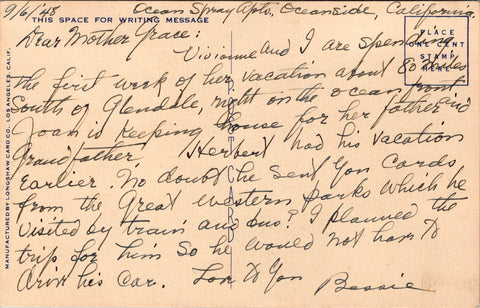 9/6/48 Ocean Spray Apts, Oceanside, California.
THIS SPACE FOR WRITING MESSAGE
PLACE
ONE CENT
STAMP
HERE
Dear Mother Grace:
Vivienne and I are spending
the first week of her vacation about 80 miles
South of Glendale, right on the ocean front
Joan is keeping house for her father and
Grandfather. Herbert had his vacation
Earlier. No doubt he sent you cards
from the Great Western parks which he
visited by train and bus? I planned the
trip for him so he would not have to
drive his car. Love to you
Bessie
POST CARD
MANUFACTURED BY LONGSHAW CARD CO., LOS ANGELES, CALIF.